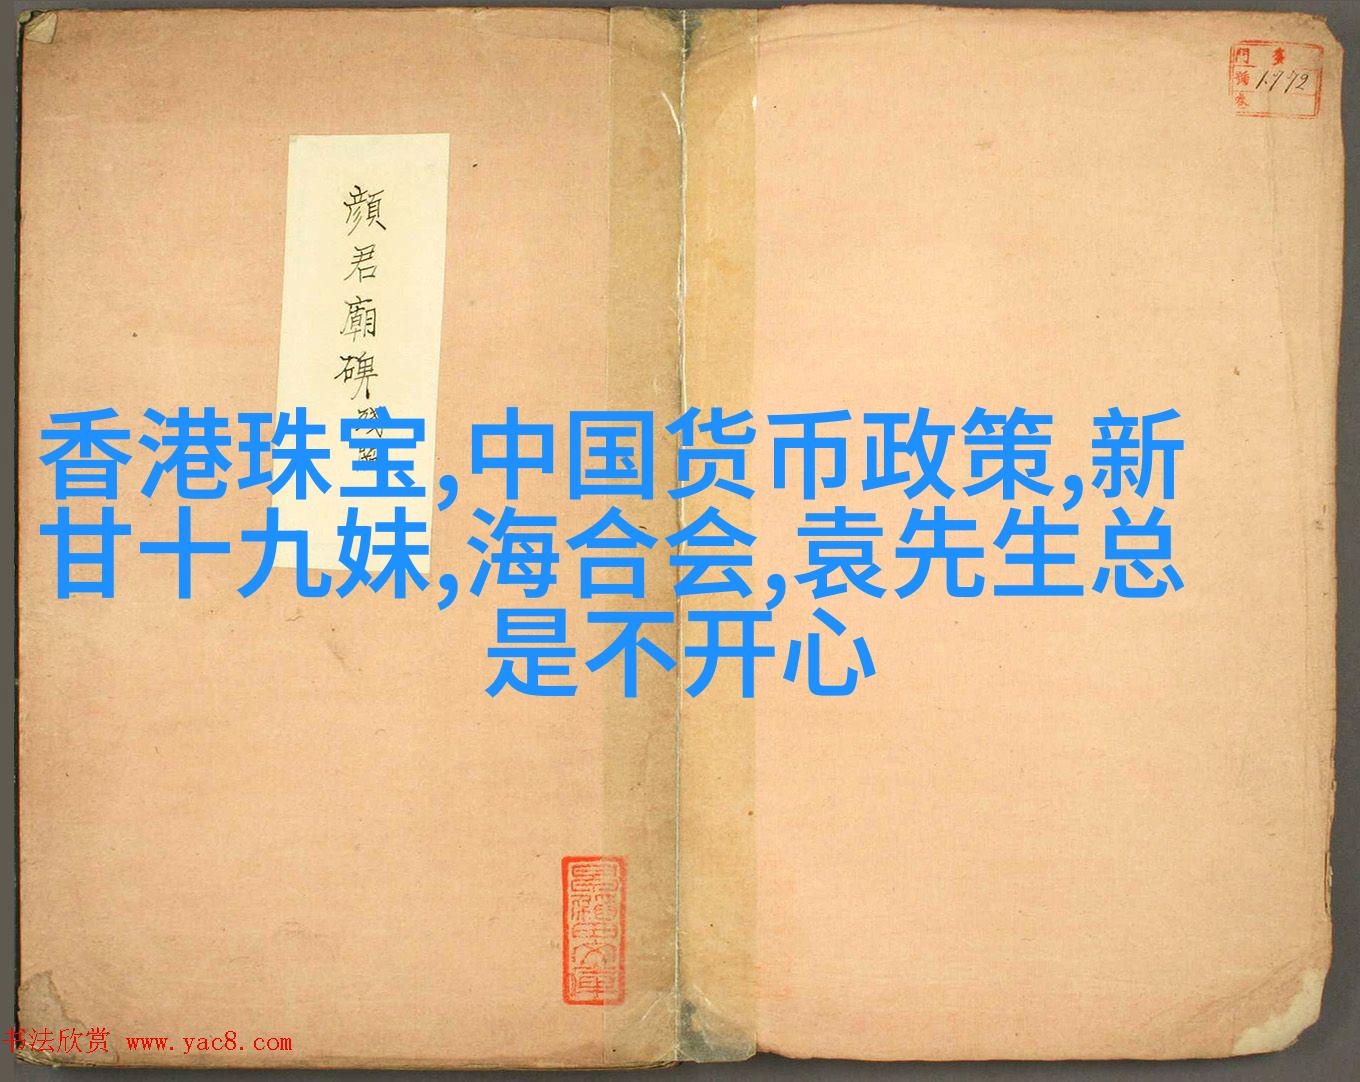 門 
號 1772
顔君廟碑殘
香港珠宝,中国货币政策,新
甘十九妹,海合会,袁先生总
是不开心
书法欣赏 www.yac8.com